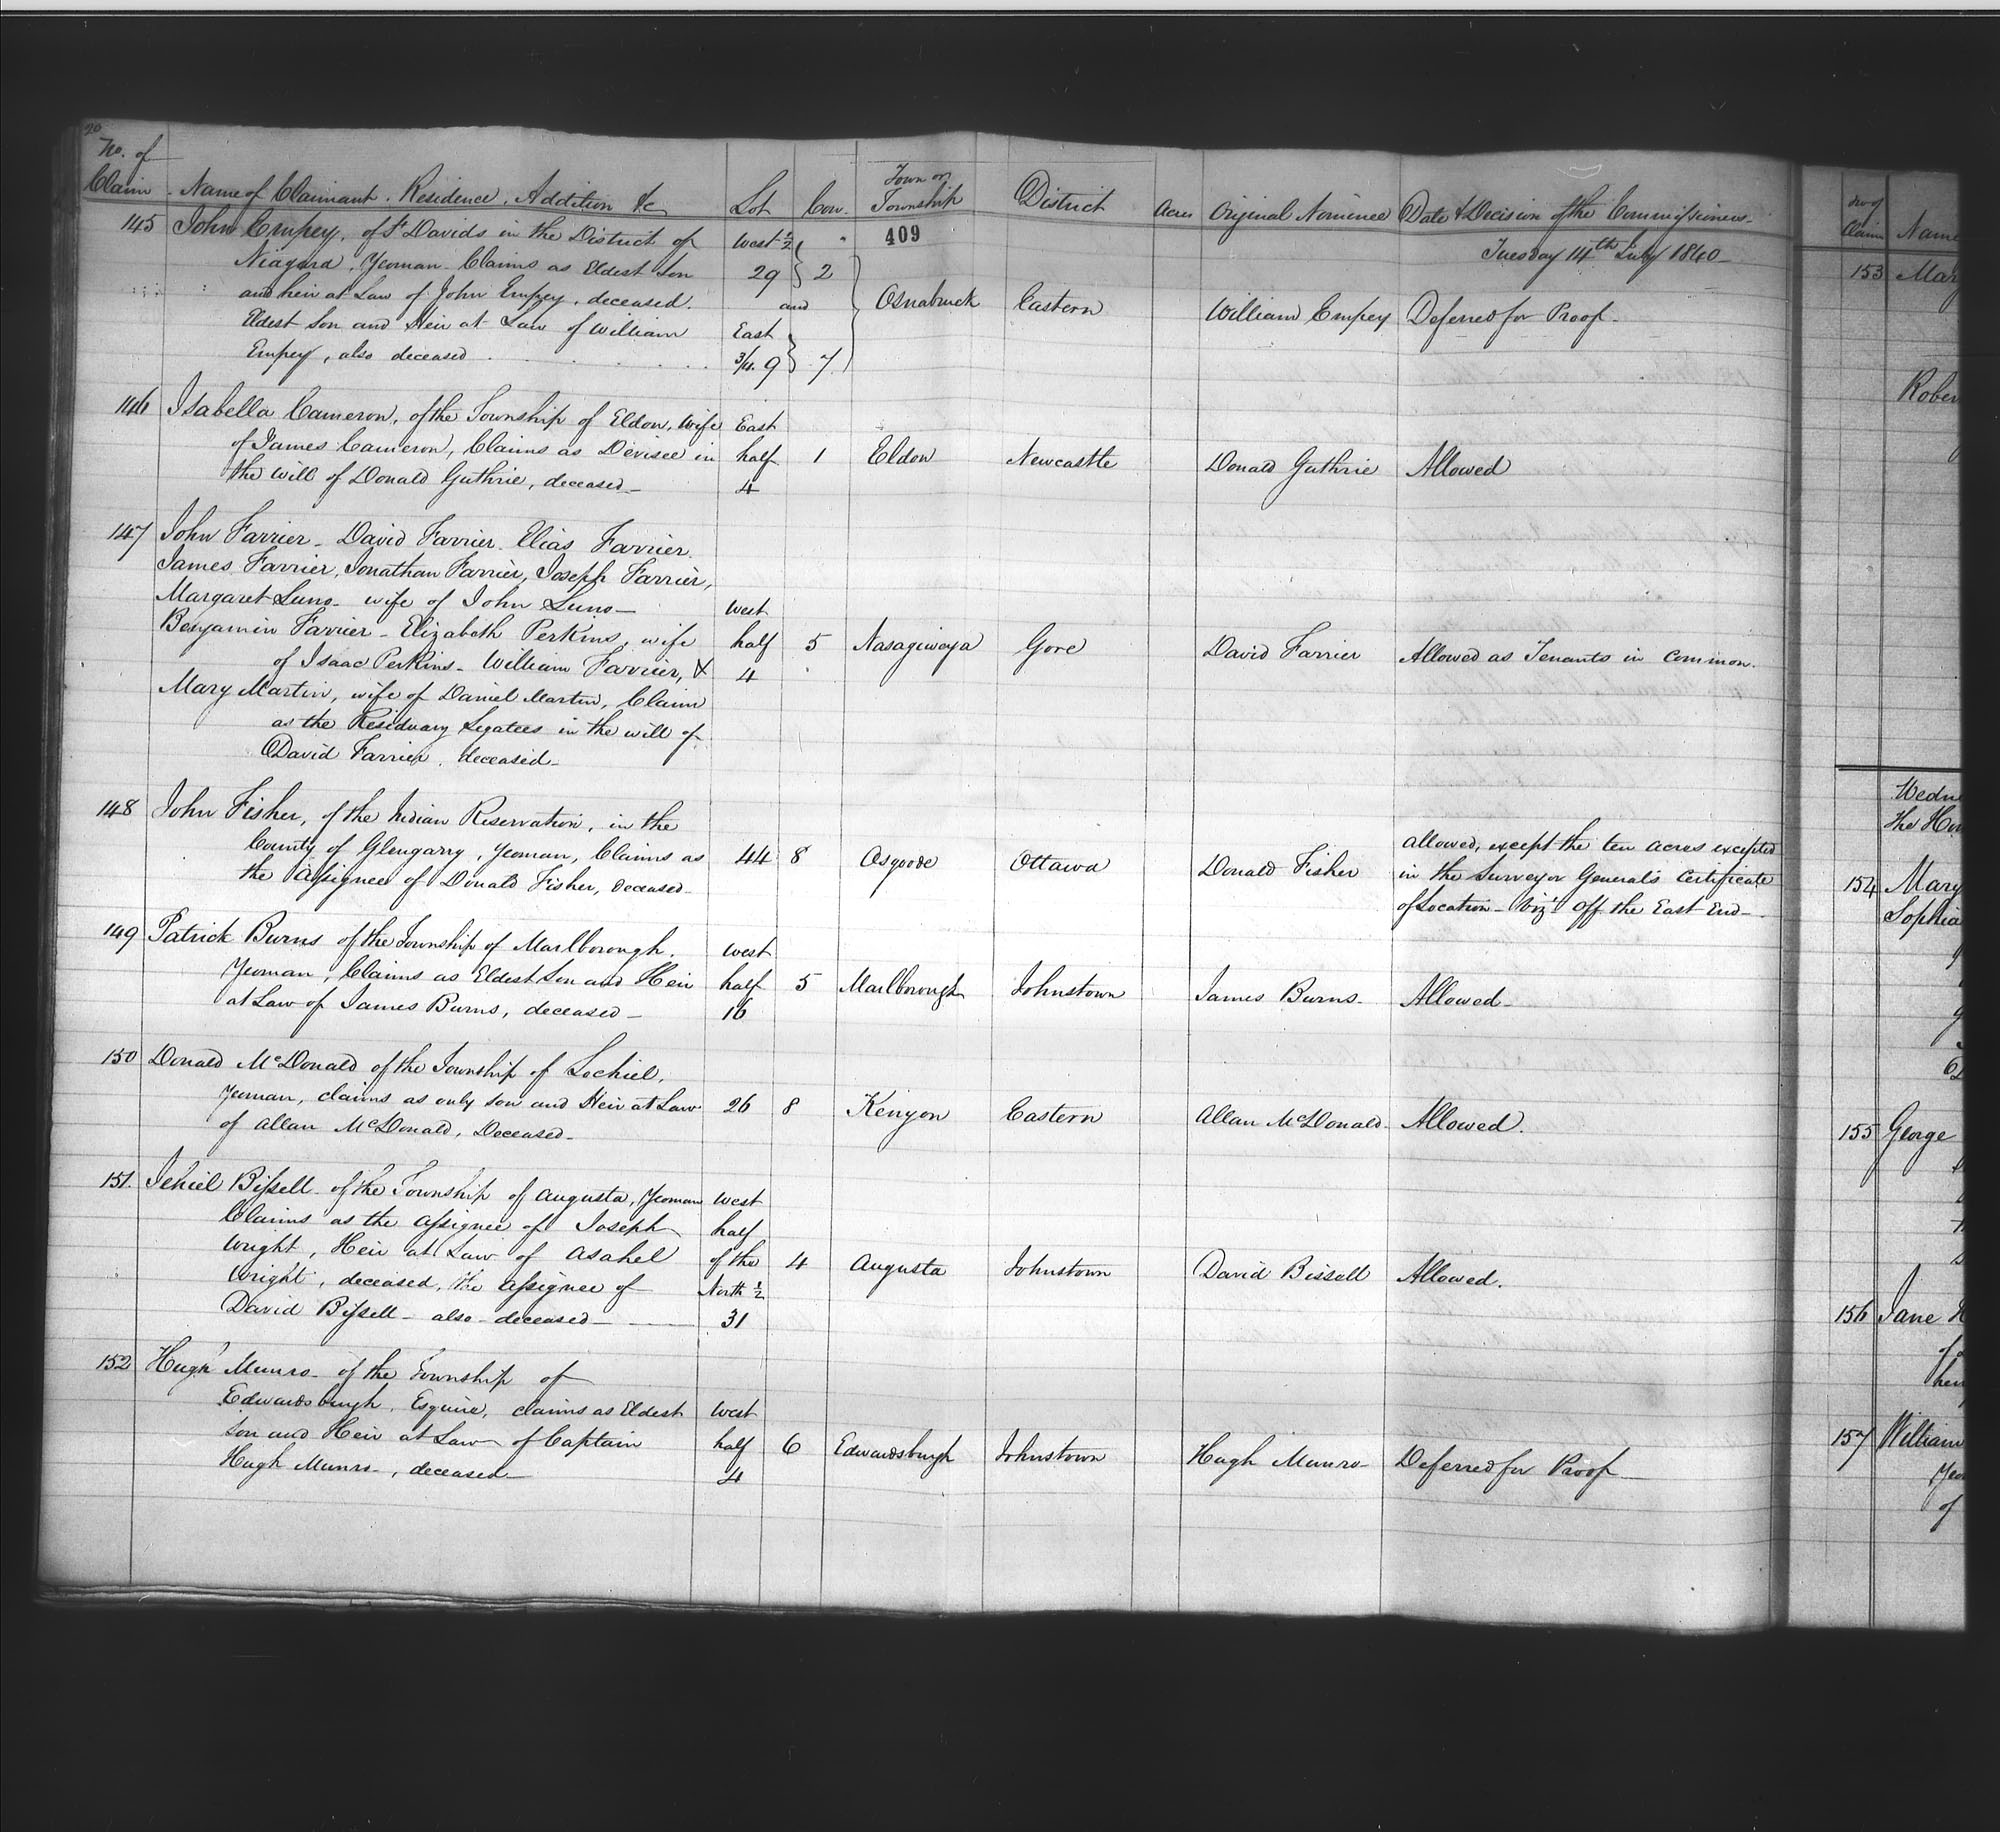 20
No. of
Claim Name of Claimant. Residence, Addition &c Lot Con. Town or Township District Acres Original Nominee Date & Decision of the Commissioners
409
Tuesday 14th July 1840
145 John Empey, of St Davids in the District of West ½
Niagara, Yeoman Claims as Eldest Son 29 2
and heir at Law of John Empey, deceased. and Osnabruck Eastern William Empey Deferred for Proof
Eldest Son and Heir at Law of William East
Empey, also deceased 3/4. 9 7
146 Isabella Cameron, of the Township of Eldon, Wife East
of James Cameron, Claims as Devisee in half 1 Eldon Newcastle Donald Guthrie Allowed
the Will of Donald Guthrie, deceased 4
147 John Farrier - David Farrier Elias Farrier
James Farrier, Jonathan Farrier, Joseph Farrier,
Margaret Luno - wife of John Luno - West
Benjamin Farrier - Elizabeth Perkins, wife half 5 Nasagiweya Gore David Farrier Allowed as Tenants in Common.
of Isaac Perkins - William Farrier, & 4
Mary Martin, wife of Daniel Martin, Claim
as the Residuary Legatees in the will of
David Farrier, deceased -
148 John Fisher, of the Indian Reservation, in the
County of Glengarry, Yeoman, Claims as 44 8 Osgoode Ottawa Donald Fisher allowed, except the ten acres excepted
the Assignee of Donald Fisher, deceased in the Surveyor General's Certificate
of Location - Vizt Off the East End -
149 Patrick Burns of the Township of Marlborough, West
Yeoman, Claims as Eldest Son and Heir half 5 Marlborough Johnstown James Burns - Allowed -
at Law of James Burns, deceased - 16
150 Donald McDonald of the Township of Lochiel,
Yeoman, claims as only son and Heir at Law 26 8 Kenyon Eastern Allan McDonald - Allowed.
of Allan McDonald, Deceased -
151. Jehiel Bissell of the Township of Augusta, Yeoman West
Claims as the Assignee of Joseph half
Wright, Heir at Law of Asahel of the 4 Augusta Johnstown David Bissell Allowed.
Wright, deceased, the Assignee of North ½
David Bissell - also - deceased - 31
152 Hugh Munro - of the Township of
Edwardsburgh, Esquire, claims as Eldest West
Son and Heir at Law of Captain half 6 Edwardsburgh Johnstown Hugh Munro - Deferred for Proof
Hugh Munro -, deceased 4
No of
Claim Name
153 Mary
Rober
Wedne
the Hon
154 Mary
Sophia
155 George
156 Jane
of
heir
157 William
Yeo
of